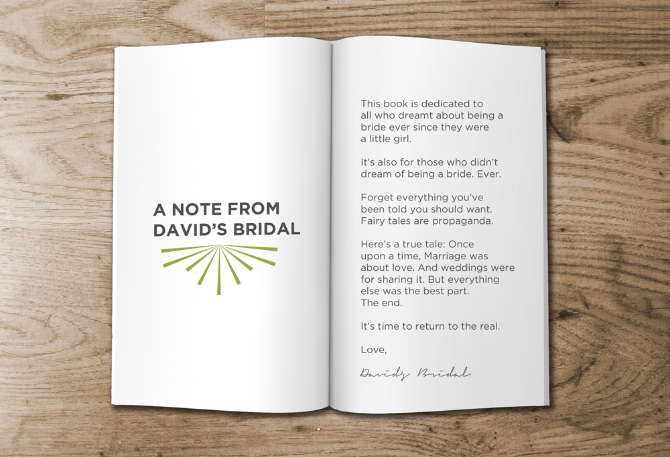 A NOTE FROM
DAVID'S BRIDAL
This book is dedicated to
all who dreamt about being a
bride ever since they were
a little girl.
It's also for those who didn't
dream of being a bride. Ever.
Forget everything you've
been told you should want.
Fairy tales are propaganda.
Here's a true tale: Once
upon a time, Marriage was
about love. And weddings were
for sharing it. But everything
else was the best part.
The end.
It's time to return to the real.
Love,
Davids Bridal